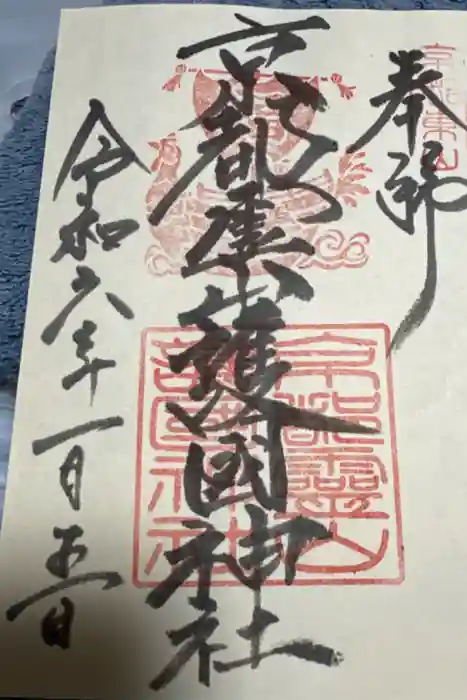 京都東山
奉拝
京都霊山護國神社
京都靈山
令和六年一月五日